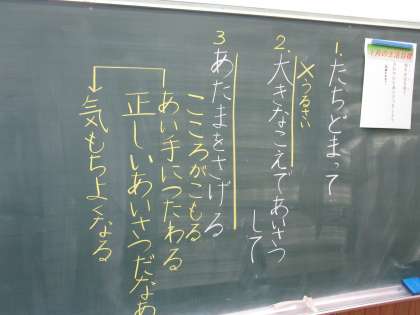 1. たちどまって
×うるさい
2. 大きなこえであいさつ
して
3 あたまをさげる
こころがこもる
あい手につたわる
正しいあいさつだなあ
気もちよくなる